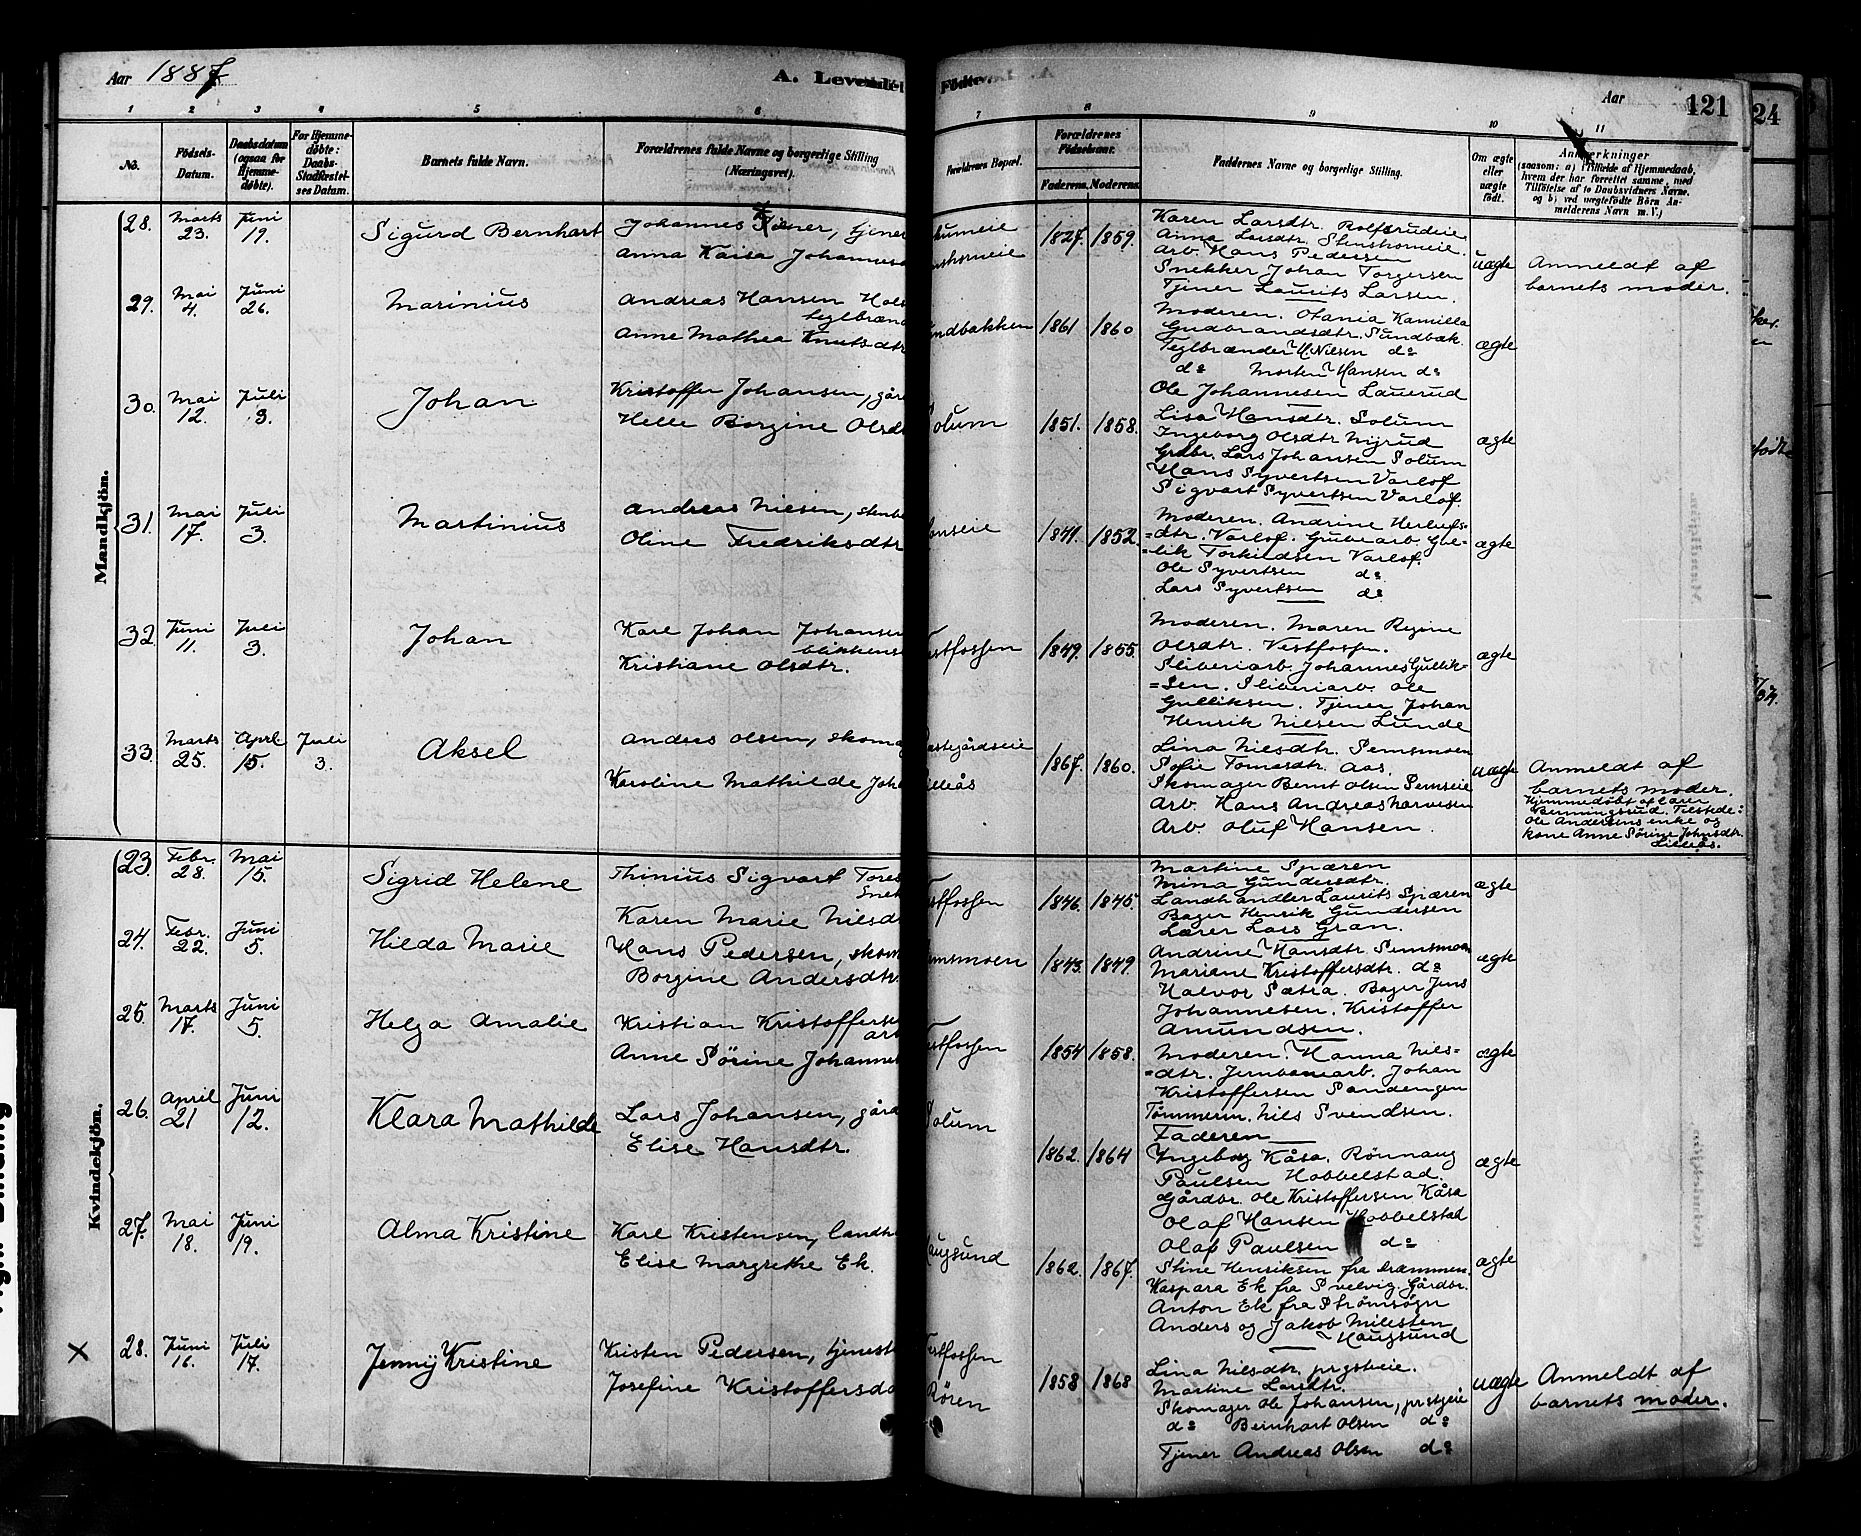 Aar 1887
A. Levende
Fødte.
Aar
121
24
1 2 3 4 5 6 7 8 9 10 11
No.
Födsels-
Datum.
Daabsdatum
(ogsaa for
Hjemme-
döbte).
For Hjemme-
döbte:
Daabs-
Stadfæstel-
ses Datum.
Barnets fulde Navn.
Forældrenes fulde Navne og borgerlige Stilling
(Næringsvei).
Forældrenes Bopæl.
Forældrenes
Födselsaar.
Faderens. Moderens.
Faddernes Navne og borgerlige Stilling.
Om ægte
eller
uægte
födt.
Anmærkninger
(saasom: a) Tilfælde af Hjemmedaab,
hvem der har forrettet samme, med
Tilföielse af to Daabsvidners Navne.
og b) ved uægtefödte Börn An-
melderens Navn m. V.)
Mandkjön.
28. Marts 23. Juni 19. Sigurd Bernhart
Johannes tjener
Anna Kaisa Johannes
1827. 1859.
Karen Larsdtr. Rolfsrudeie
Anna Larsdtr. Stenshorneie.
Arb. Hans Pedersen
Snekker Johan Torgersen
Tjener Laurits Larsen.
uægte
Anmeldt af
barnets moder.
29. Mai 4. Juni 26. Marinius
Andreas Hansen Hals
teglbrænd
Anne Mathea Knutsdtr
undbakken
1861 1860
Moderen. Otania Kamilla
Gudbrandsdtr. Sundbak.
Teglbrænder H. Nilsen do
do Morten Hansen do
Ole Johannesen Lauerud
ægte
30. Mai 12. Juli 3. Johan
Kristoffer Johansen, går
Helle Borgine Olsdt
Solum
1851. 1858.
Lisa Hansdtr. Solum
Ingeborg Olsdtr Myrud
Grdbr. Lars Johansen Solum
Hans Syvertsen Varlof
Sigvart Syvertsen Varlof.
ægte
31. Mai 17. Juli 3. Martinius
Andreas Nilsen, stenbr
Oline Fredriksdtr
onseie
1841. 1852.
Moderen. Andrine Herlufs-
=dtr. Varlof. Grubearb. Gul-
=lik Torkildsen Varlof.
Ole Syvertsen do
Lars Syvertsen do
ægte
32. Juni 11. Juli 3. Johan
Karl Johan Johansen
blikkens
Kristiane Olsdtr.
estfossen
1849. 1855.
Moderen. Maren Regine
Olsdtr. Vestfossen.
Sliberiarb. Johannes Gullik-
=sen. Sliberiarb. Ole
Gulliksen. Tjener Johan
Henrik Nilsen Lunde
ægte
33. Marts 25. April 15. Juli 3. Aksel
Andreas Olsen, skomag
Karoline Mathilde Joh
estegårdseie
illeås
1867. 1860.
Lina Nilsdtr. Semsmoen
Sofie Tomasdtr. Aas.
Skomager Bernt Olsen Semseie
Arb. Hans Andreas
Arb. Oluf Hansen.
uægte
Anmeldt af
barnets moder.
Hjemmedøbt af lærer
Tilstede:
Ole Andersens enke og
kone Anne Sørine Johnsdtr.
Lilleås.
Kvindekjön.
23. Febr. 28. Mai 15. Sigrid Helene
Thinius Sigvart Tores
Snek
Karen Marie Nilsd
stfossen
1846. 1845.
Martine Spæren
Mina Gundersdtr.
Landhandler Laurits Spæren
Bager Henrik Gundersen
Lærer Lars Gran.
ægte
24. Febr. 22. Juni 5. Hilda Marie
Hans Pedersen, skom
Borgine Andersdtr.
emsmoen
1843. 1849.
Andrine Hansdtr Semsmoen
Mariane Kristoffersdtr. do
Halvor Sætra. Bager Jens
Johannesen. Kristoffer
Amundsen.
ægte
25. Marts 17. Juni 5. Helga Amalie
Kristian Kristofferse
arb
Anne Sørine Johannes
estfossen
1854 1858.
Moderen. Hanna Nils=
=dtr. Jernbanearb. Johan
Kristoffersen Sandengen
Tømmerm. Nils Svendsen.
Faderen
ægte
26. April 21 Juni 12. Klara Mathilde
Lars Johansen, gård
Elise Hansdtr.
Solum
1862. 1864
Ingeborg Kåsa. Rønnaug
Paulsen Hobbelstad.
Gårdbr. Ole Kristoffersen Kåsa
Olaf Hansen Hobbelstad
Olaf Paulsen do
ægte
27. Mai 18. Juni 19. Alma Kristine
Karl Kristensen, landh
Elise Margrethe Ek.
augsund
1862. 1867.
Stine Henriksen fra Drammen.
Kaspara Ek fra Svelvig. Gårdbr.
Anton Ek fra Strømsøgn
Anders og Jakob Milesten
Haugsund
ægte
X
28. Juni 16. Juli 17. Jenny Kristine
Kristen Pedersen, tjenest
Josefine Kristoffersd
estfossen
Røren
1858 1868
Lina Nilsdtr. prgsteie.
Martine Larsdtr.
Skomager Ole Johansen, prstgeie
do Bernhart Olsen do
Tjener Andreas Olsen do
uægte
Anmeldt af
barnets moder.